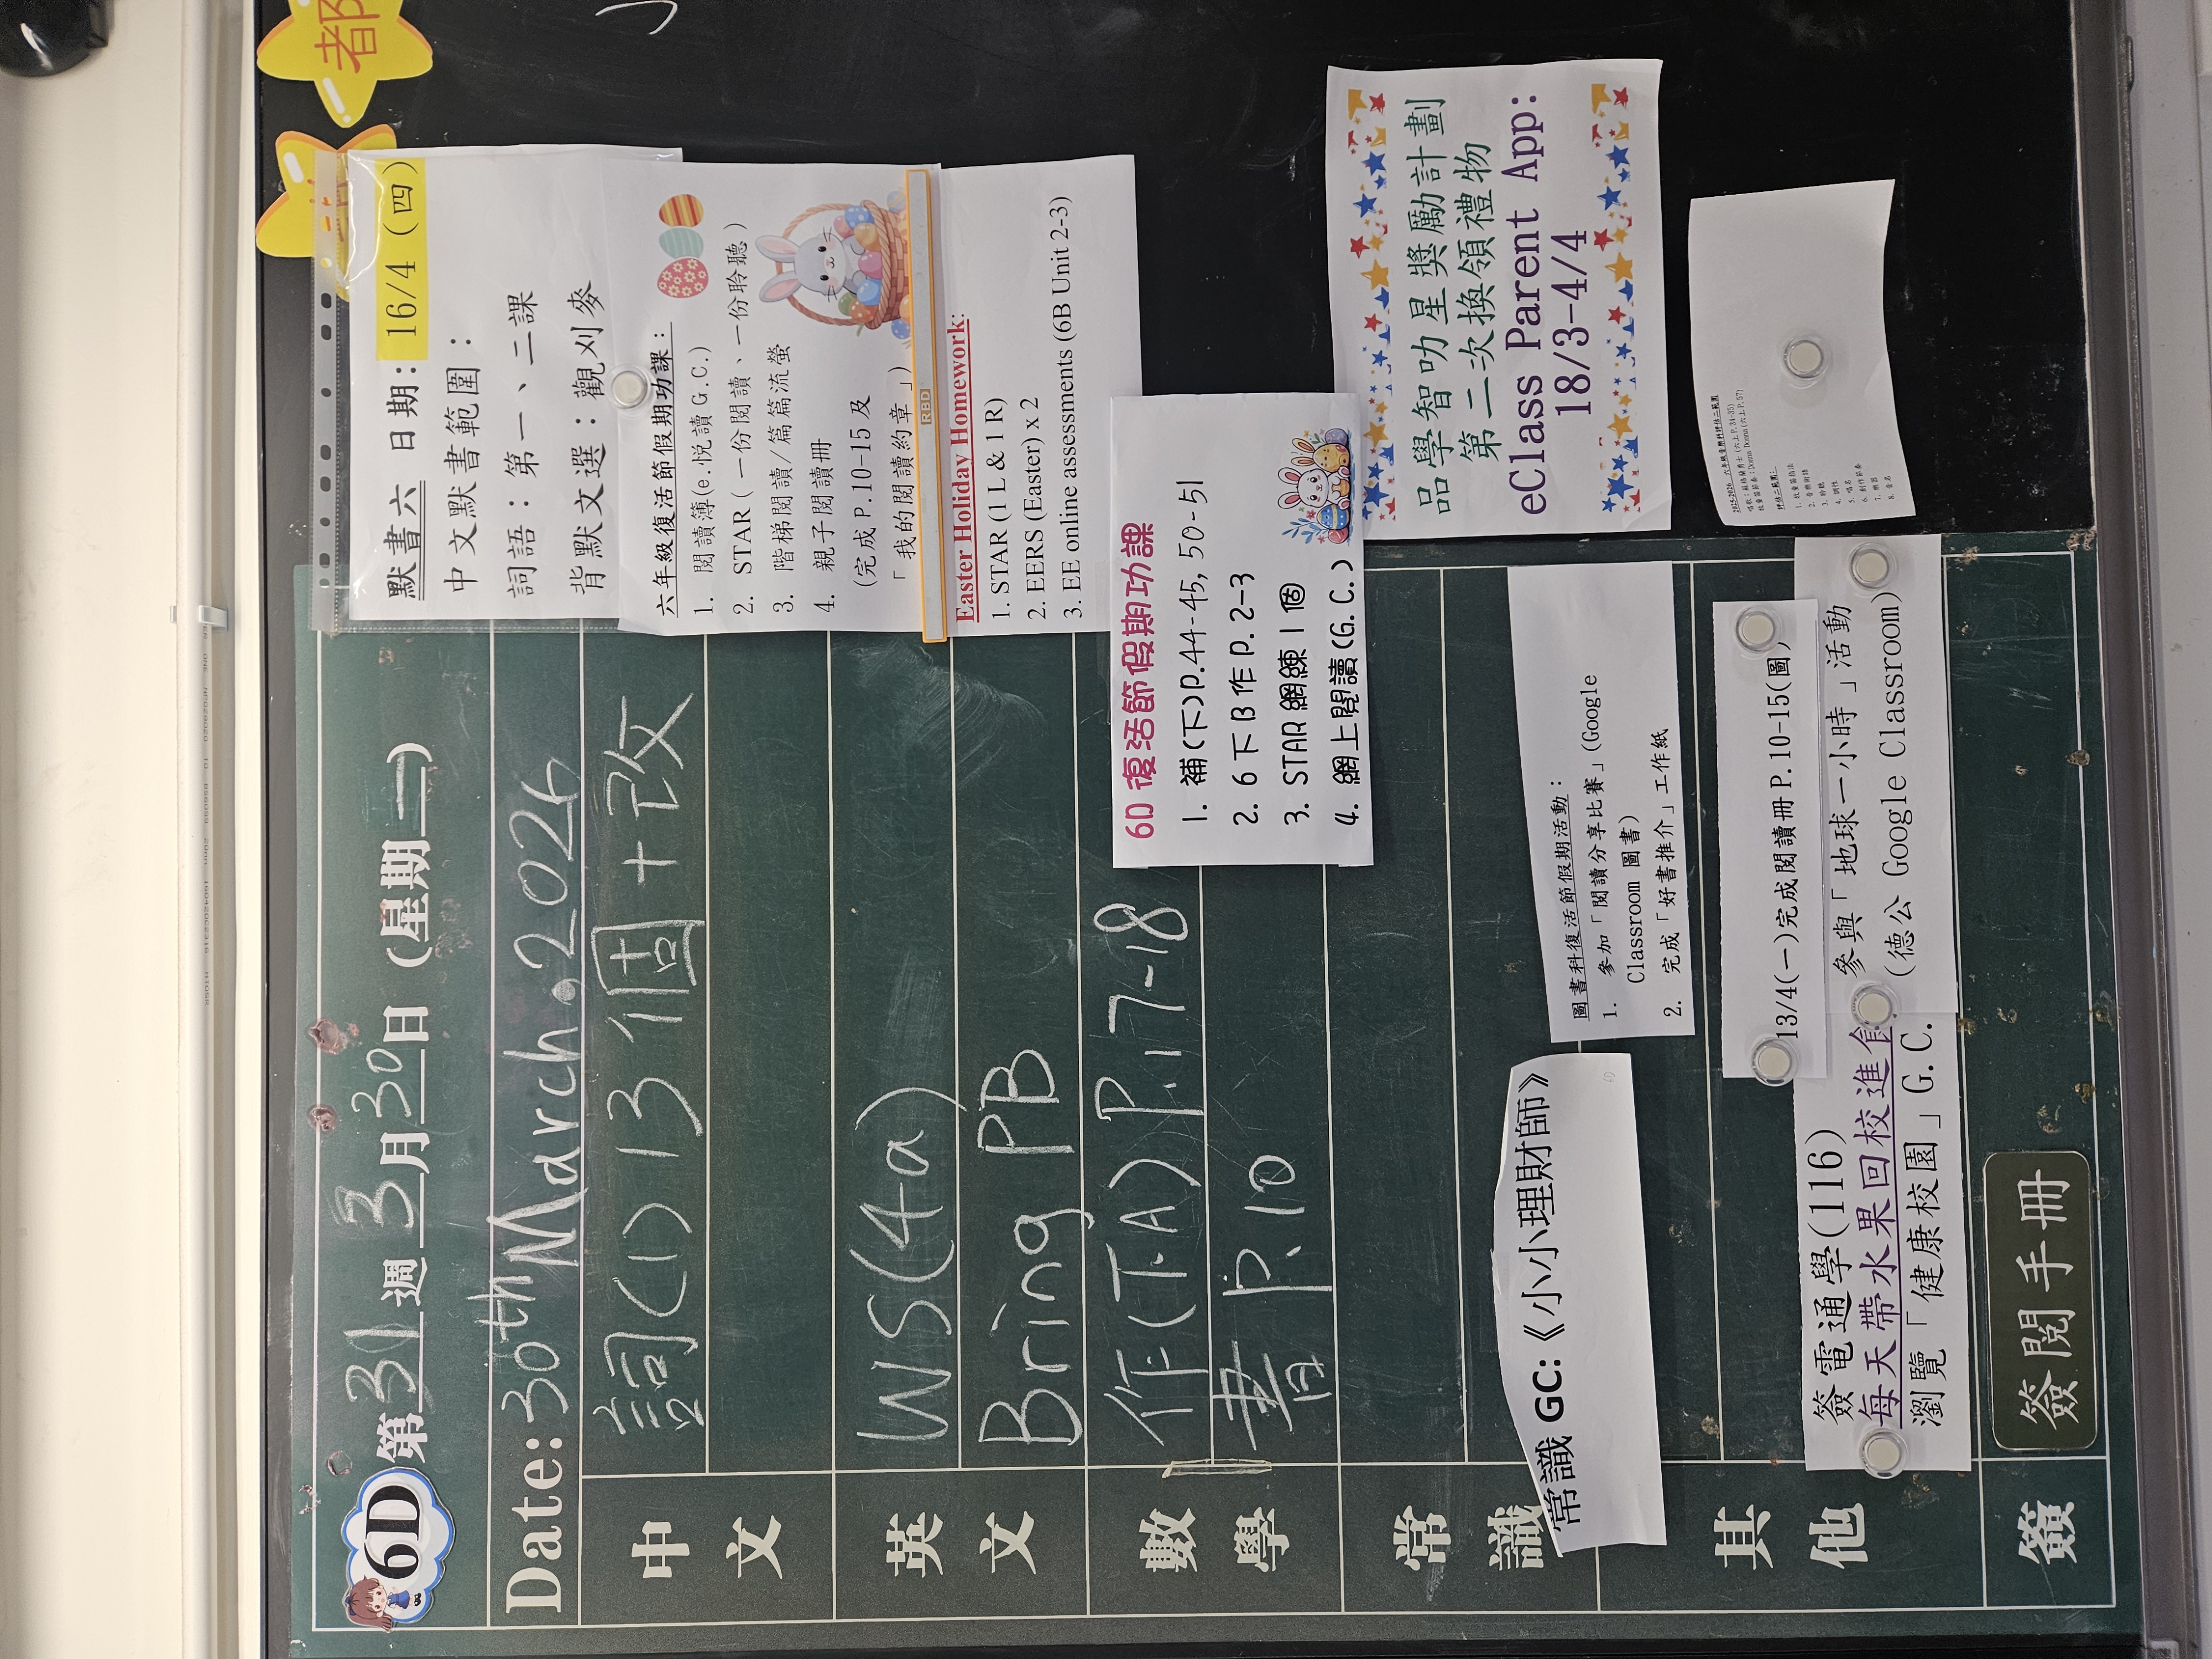 都
6D 第31週 3月30日 (星期一)
Date: 30th March, 2026
中文
詞(1) 13個+改
英文
WS(4a)
Bring PB
數學
作(下A)P.17-18
書P.10
常識
常識 GC:《小小理財師》
其他
圖書科復活節假期活動：
1. 參加「閱讀分享比賽」(Google
Classroom 圖書)
2. 完成「好書推介」工作紙
13/4(一)完成閱讀冊 P.10-15(圖)
參與「地球一小時」活動
(德公 Google Classroom)
簽電通學(116)
每天帶水果回校進食
瀏覽「健康校園」G.C.
簽
簽閱手冊
默書六 日期: 16/4 (四)
中文默書範圍：
詞語：第一、二課
背默文選：觀刈麥
六年級復活節假期功課：
1. 閱讀簿(e.悅讀 G.C.)
2. STAR (一份閱讀、一份聆聽)
3. 階梯閱讀/篇篇流螢
4. 親子閱讀冊
(完成 P.10-15 及
「我的閱讀約章」)
RBD
Easter Holiday Homework:
1. STAR (1 L & 1 R)
2. EERS (Easter) x 2
3. EE online assessments (6B Unit 2-3)
6D 復活節假期功課
1. 補(下)P.44-45, 50-51
2. 6下B作P.2-3
3. STAR 網練 1 個
4. 網上閱讀(G.C.)
品學智叻星獎勵計劃
第二次換領禮物
eClass Parent App:
18/3-4/4